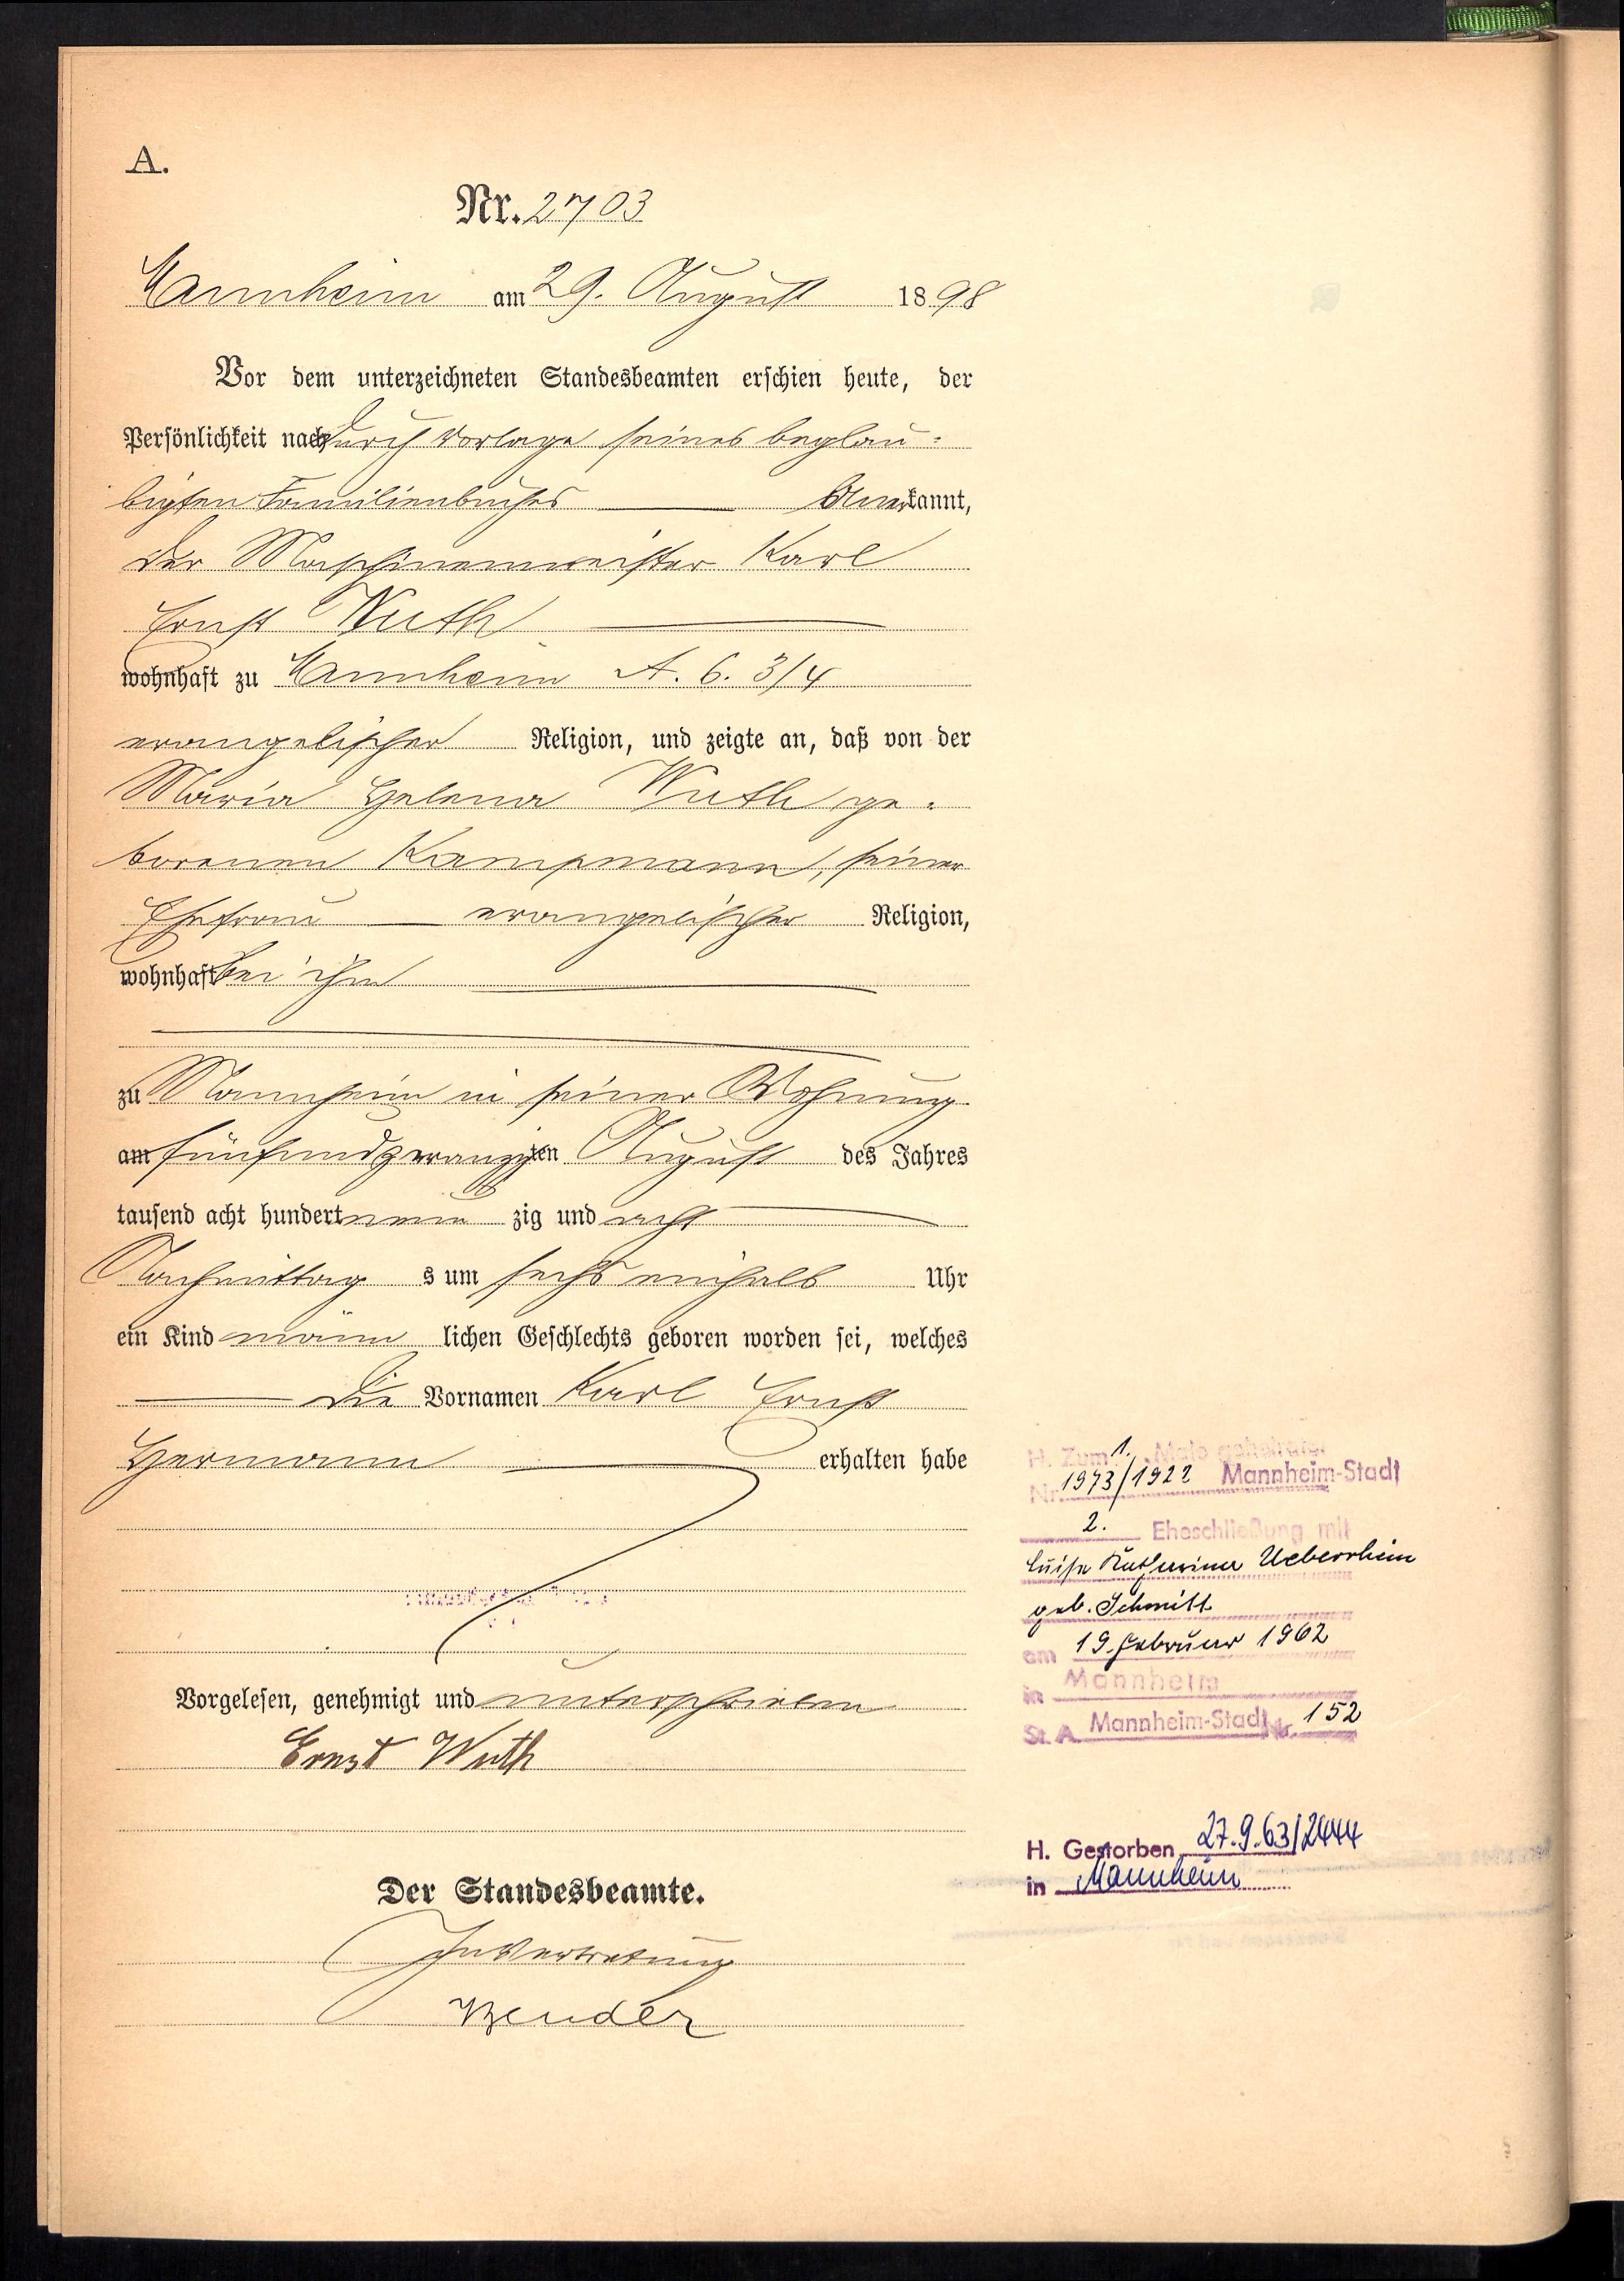 A.
Nr. 2703
Mannheim am 29. August 1898
Vor dem unterzeichneten Standesbeamten erschien heute, der
Persönlichkeit nach durch Vorlage seines beglau-
bigten Familienbuches anerkannt,
der Maschinenmeister Karl
Ernst Wuth
wohnhaft zu Mannheim A. 6. 3/4
evangelischer Religion, und zeigte an, daß von der
Maria Helena Wuth ge-
borenen Kampmann, seiner
Ehefrau evangelischer Religion,
wohnhaft bei ihm
zu Mannheim in seiner Wohnung
am fünfundzwanzigsten August des Jahres
tausend acht hundert neun zig und acht
Nachmittags um sechs einhalb Uhr
ein Kind männlichen Geschlechts geboren worden sei, welches
die Vornamen Karl Ernst
Hermann erhalten habe
Vorgelesen, genehmigt und unterschrieben
Ernst Wuth
Der Standesbeamte.
In Vertretung
Bender
H. Zum 1. Male geheiratet
Nr. 1973/1922 Mannheim-Stadt
2. Eheschließung mit
Luise Katharina Ueberrhein
geb. Schmitt
am 19. Februar 1962
in Mannheim
St. A. Mannheim-Stadt Nr. 152
H. Gestorben 27.9.63/2444
in Mannheim